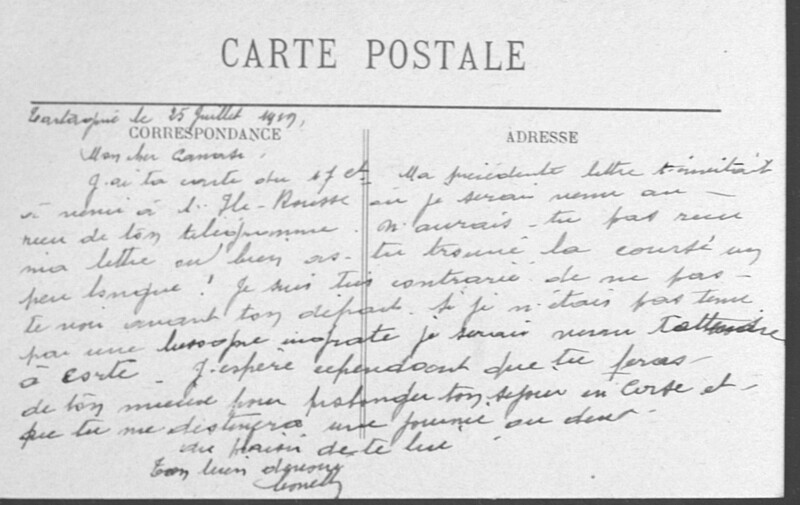 CARTE POSTALE
le 25 Juillet 1919,
CORRESPONDANCE
ADRESSE
Mon cher Camarade,
J'ai ta carte du 17 ct. Ma précédente lettre t'invitait
à venir à l'Ile-Rousse où je serais venu au
reçu de ton télégramme. N'aurais-tu pas reçu
ma lettre ou bien as-tu trouvé la course un
peu longue! Je suis très contrarié de ne pas
te voir avant ton départ. Si je n'étais pas tenu
par une besogne ingrate je serais venu t'attendre
à Corte. J'espère cependant que tu feras
de ton mieux pour prolonger ton séjour en Corse et
que tu me destinera une journée ou deux.
Au plaisir de te lire
Ton bien